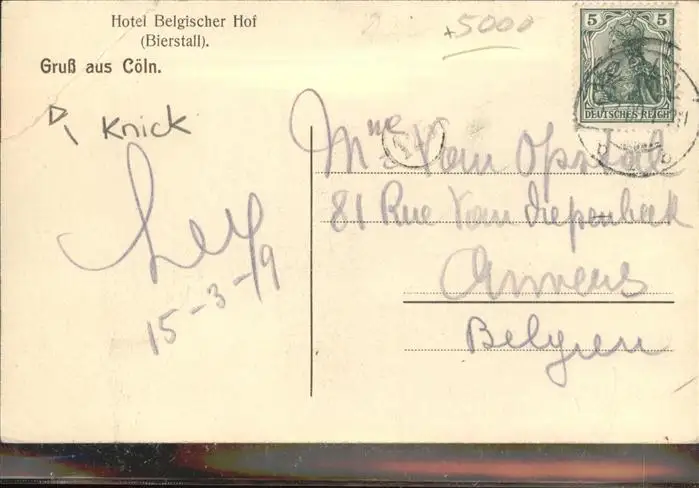 Hotel Belgischer Hof
(Bierstall).
Gruß aus Cöln.
+5000
5 5
DEUTSCHES REICH
Knick
15-3-19
Mme Van Opstal
81 Rue Van Diepenbeek
Anvers
Belgien